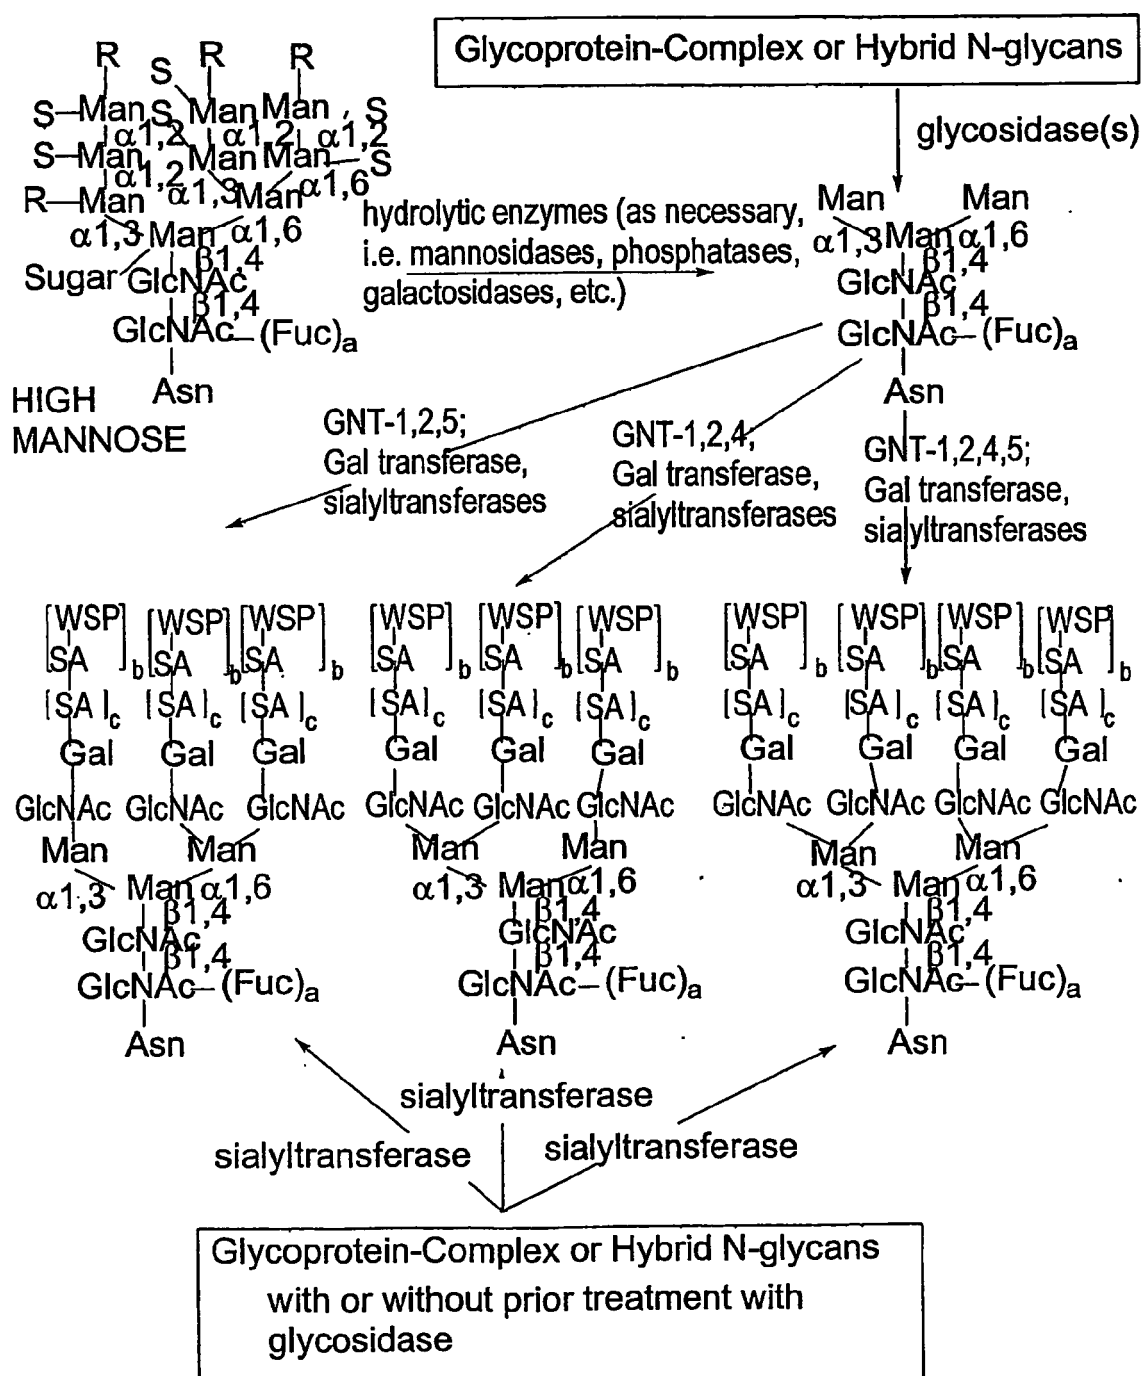 Glycoprotein-Complex or Hybrid N-glycans
glycosidase(s)
R S R R
S—Man S Man Man S
α1,2 α1,2 α1,2
S—Man Man Man—S
α1,2 α1,3 Man α1,6
R—Man
α1,3 Man α1,6
β1,4
Sugar GlcNAc
β1,4
GlcNAc—(Fuc)a
Asn
HIGH
MANNOSE
hydrolytic enzymes (as necessary,
i.e. mannosidases, phosphatases,
galactosidases, etc.)
Man Man
α1,3 Man α1,6
β1,4
GlcNAc
β1,4
GlcNAc—(Fuc)a
Asn
GNT-1,2,5;
Gal transferase,
sialyltransferases
GNT-1,2,4;
Gal transferase,
sialyltransferases
GNT-1,2,4,5;
Gal transferase,
sialyltransferases
[WSP] [WSP] [WSP]
[SA]b [SA]b [SA]b
[SA]c [SA]c [SA]c
Gal Gal Gal
GlcNAc GlcNAc GlcNAc
Man Man
α1,3 Man α1,6
β1,4
GlcNAc
β1,4
GlcNAc—(Fuc)a
Asn
[WSP] [WSP] [WSP]
[SA]b [SA]b [SA]b
[SA]c [SA]c [SA]c
Gal Gal Gal
GlcNAc GlcNAc GlcNAc
Man Man
α1,3 Man α1,6
β1,4
GlcNAc
β1,4
GlcNAc—(Fuc)a
Asn
[WSP] [WSP] [WSP] [WSP]
[SA]b [SA]b [SA]b [SA]b
[SA]c [SA]c [SA]c [SA]c
Gal Gal Gal Gal
GlcNAc GlcNAc GlcNAc GlcNAc
Man Man
α1,3 Man α1,6
β1,4
GlcNAc
β1,4
GlcNAc—(Fuc)a
Asn
sialyltransferase
sialyltransferase
sialyltransferase
Glycoprotein-Complex or Hybrid N-glycans
with or without prior treatment with
glycosidase